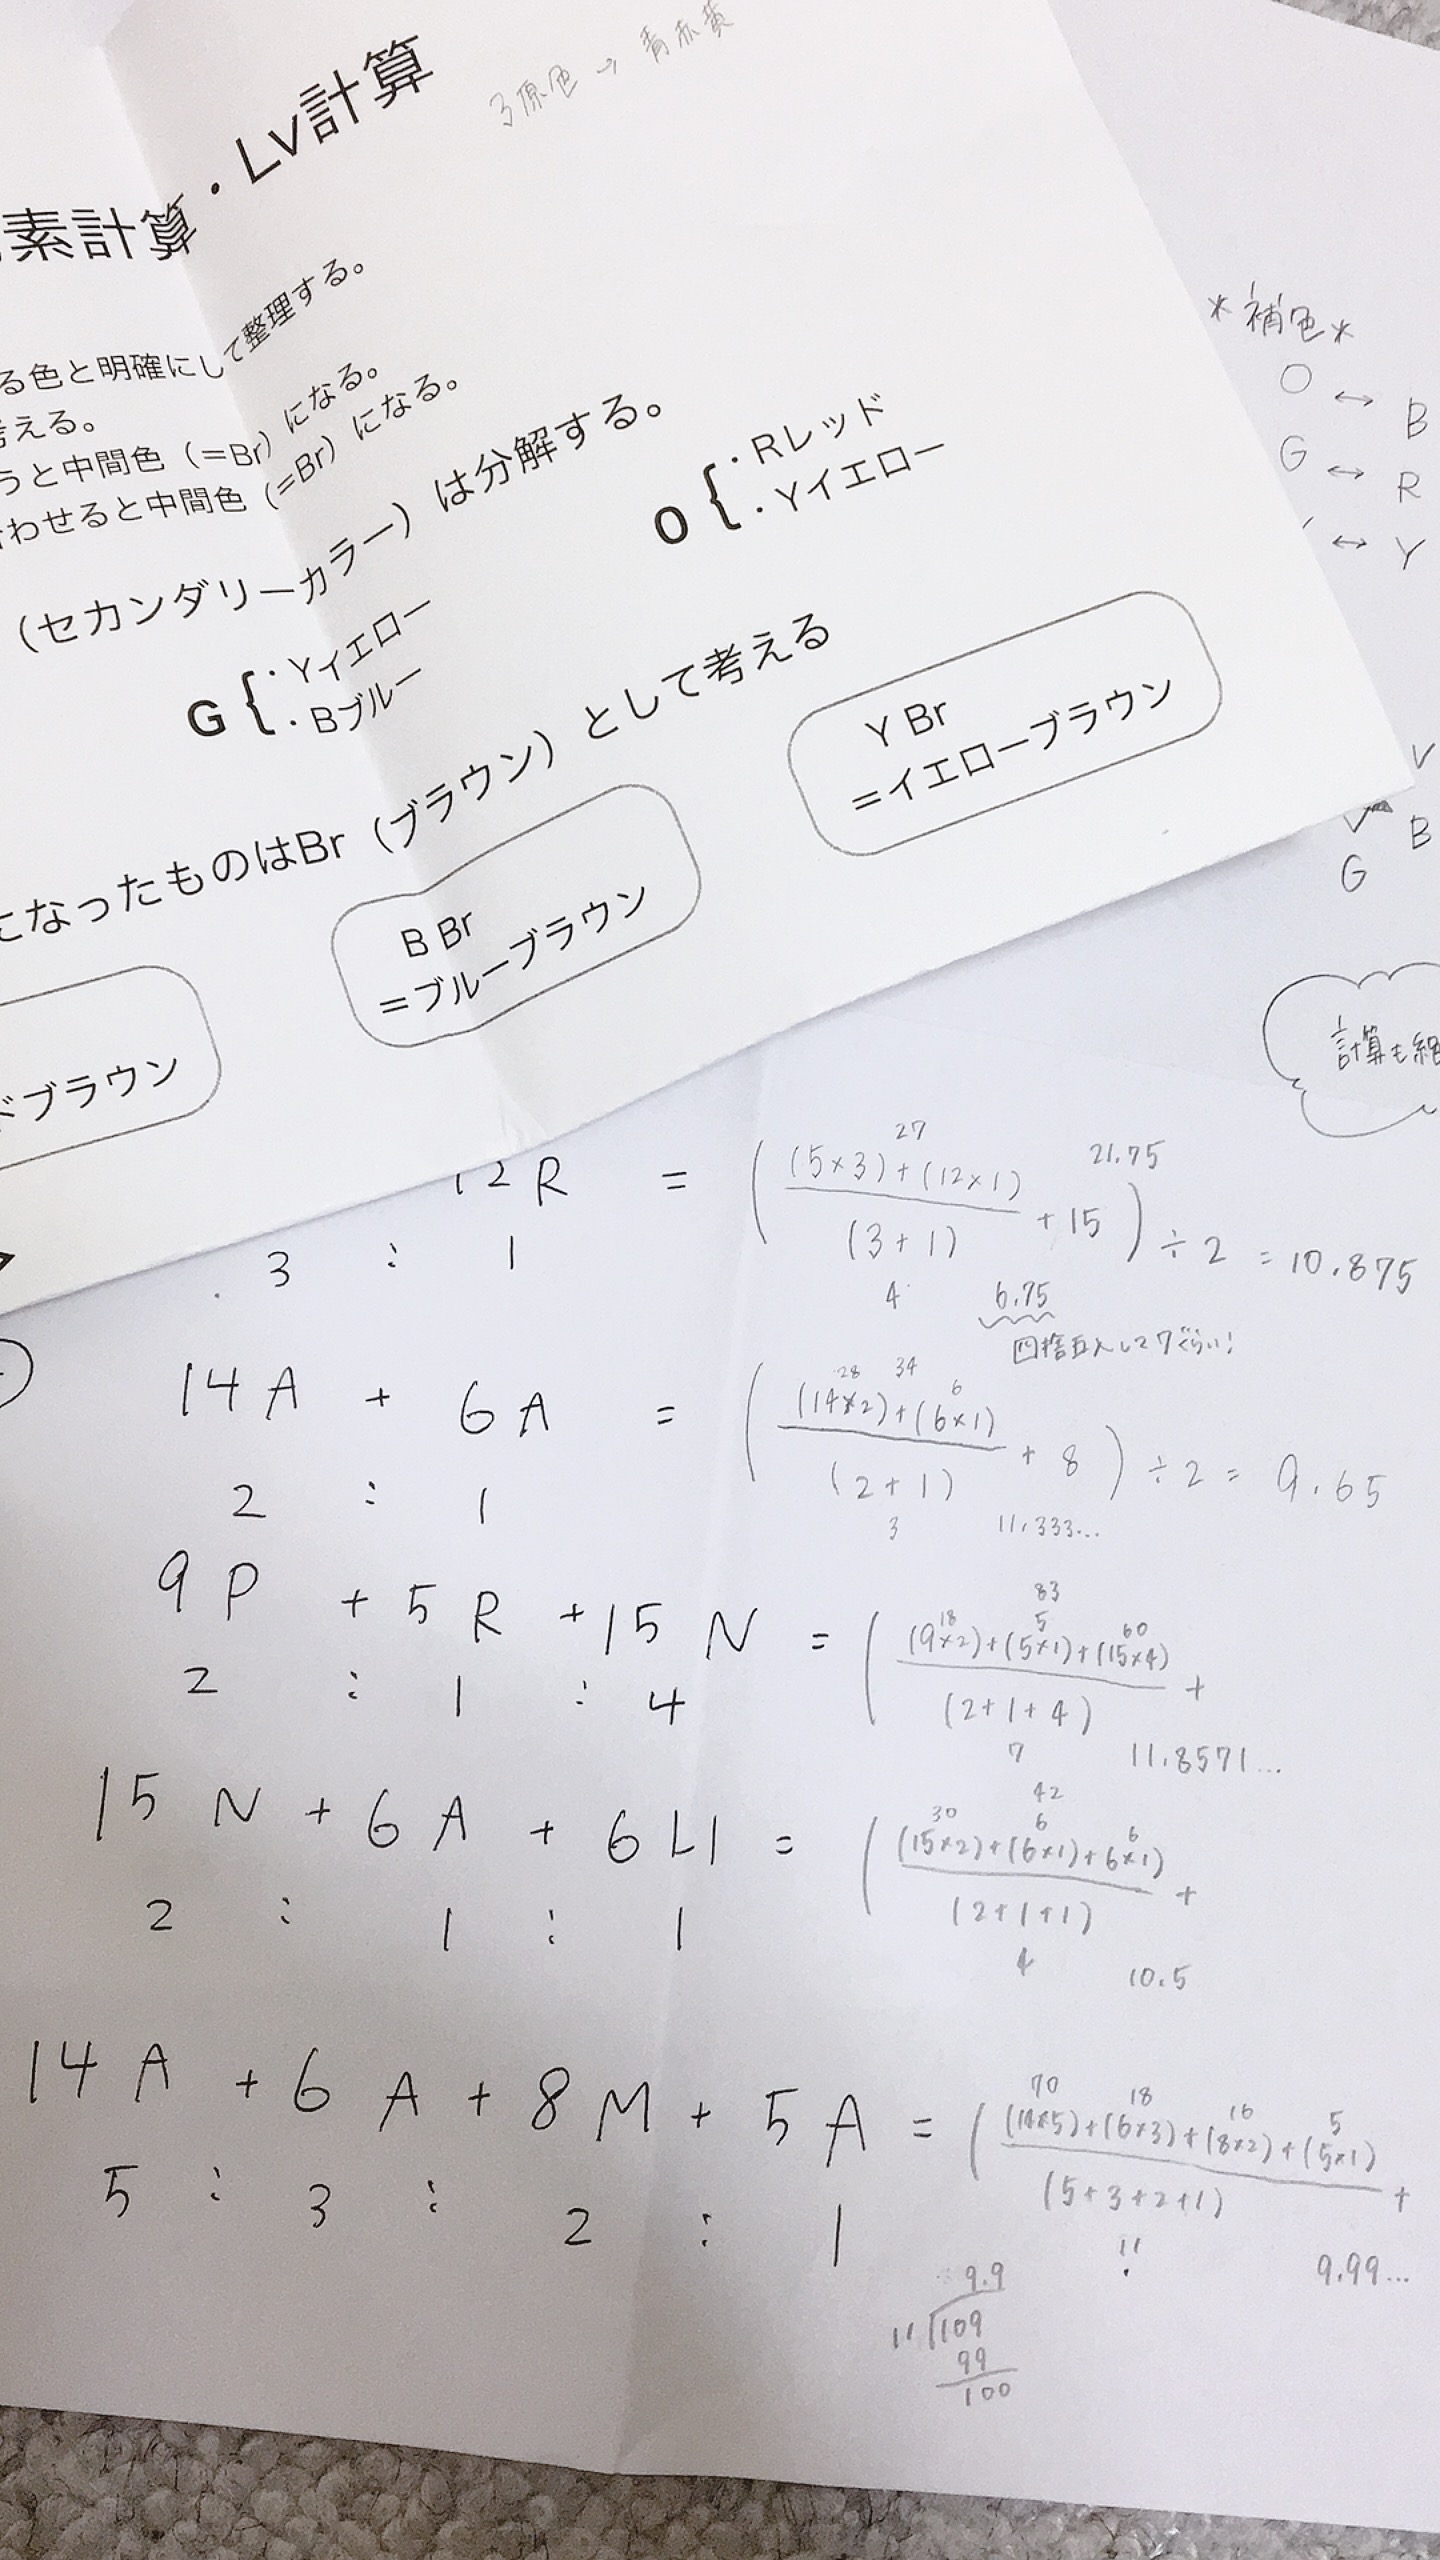 3原色 → 青赤黄
素計算・Lv計算
る色と明確にして整理する。
考える。
うと中間色（=Br）になる。
合わせると中間色（=Br）になる。
（セカンダリーカラー）は分解する。
G { ・Yイエロー
・Bブルー
O { ・Rレッド
・Yイエロー
になったものはBr（ブラウン）として考える
ドブラウン
B Br
=ブルーブラウン
Y Br
=イエローブラウン
*補色*
O ↔ B
G ↔ R
↔ Y
V
V B
G
計算も
12R = ( (5×3)+(12×1) / (3+1) + 15 ) ÷ 2 = 10.875
27
21.75
3 : 1
4
6.75
四捨五入して7ぐらい!
14A + 6A = ( (14×2)+(6×1) / (2+1) + 8 ) ÷ 2 = 9.65
28 34 6
2 : 1
3 11.333...
9P + 5R + 15N = ( (9×2)+(5×1)+(15×4) / (2+1+4) +
83
18 5 60
2 : 1 : 4
7 11.8571...
15N + 6A + 6LI = ( (15×2)+(6×1)+6×1) / (2+1+1) +
42
30 6 6
2 : 1 : 1
4 10.5
14A + 6A + 8M + 5A = ( (14×5)+(6×3)+(8×2)+(5×1) / (5+3+2+1) +
70 18 16 5
5 : 3 : 2 : 1
11 9.99...
9.9
11 109
99
100